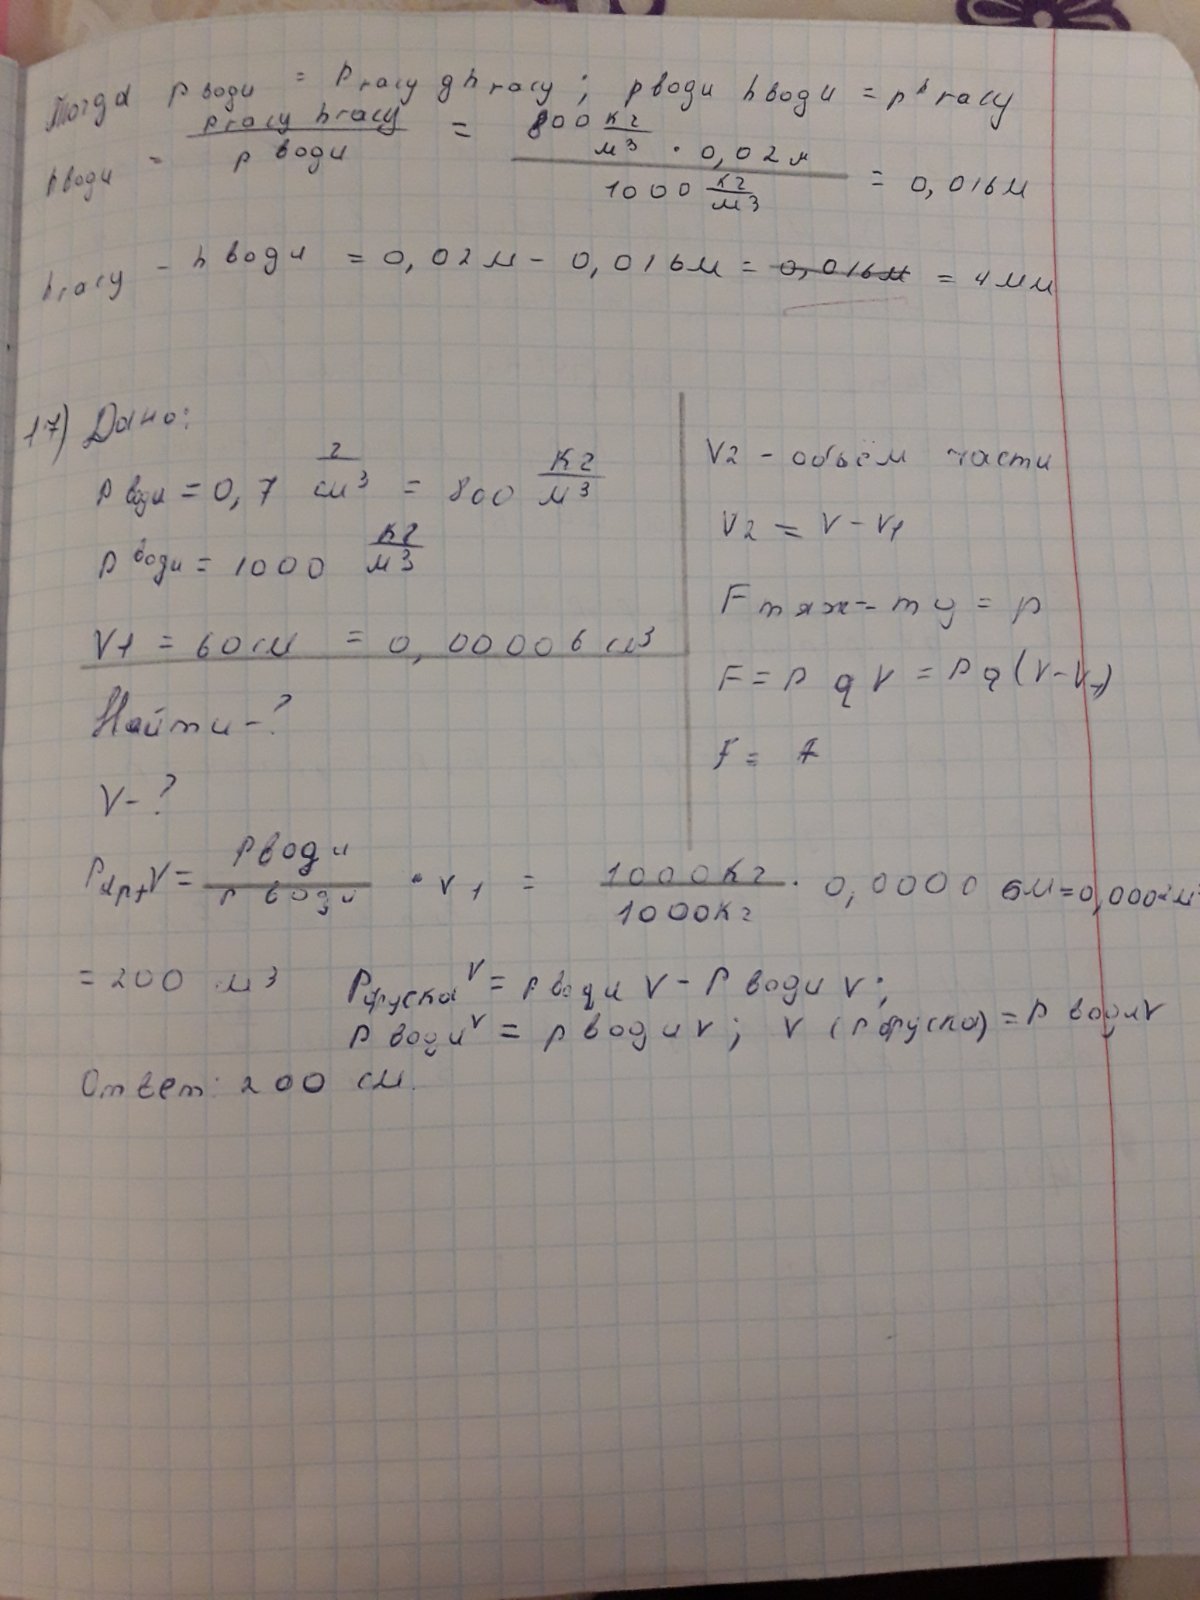 Тогда p води = p гасу g h гасу ; p води h води = p h гасу
h води = p гасу h гасу / p води = 800 кг/м3 · 0,02м / 1000 кг/м3 = 0,016м
h гасу - h води = 0,02м - 0,016м = 0,016м = 4мм
17) Дано:
p води = 0,7 г/см3 = 800 кг/м3
p води = 1000 кг/м3
V1 = 60см = 0,00006 см3
Найти - ?
V - ?
V2 - объём части
V2 = V - V1
F тяж = mg = p
F = p g V = p g (V - V1)
F = A
V = p води / p води · V1 = 1000кг / 1000кг · 0,0000 6м = 0,0002м3
= 200 м3 p бруска V = p води V - p води V ;
p води V = p води V ; V (p бруска) = p води V
Ответ: 200 см.